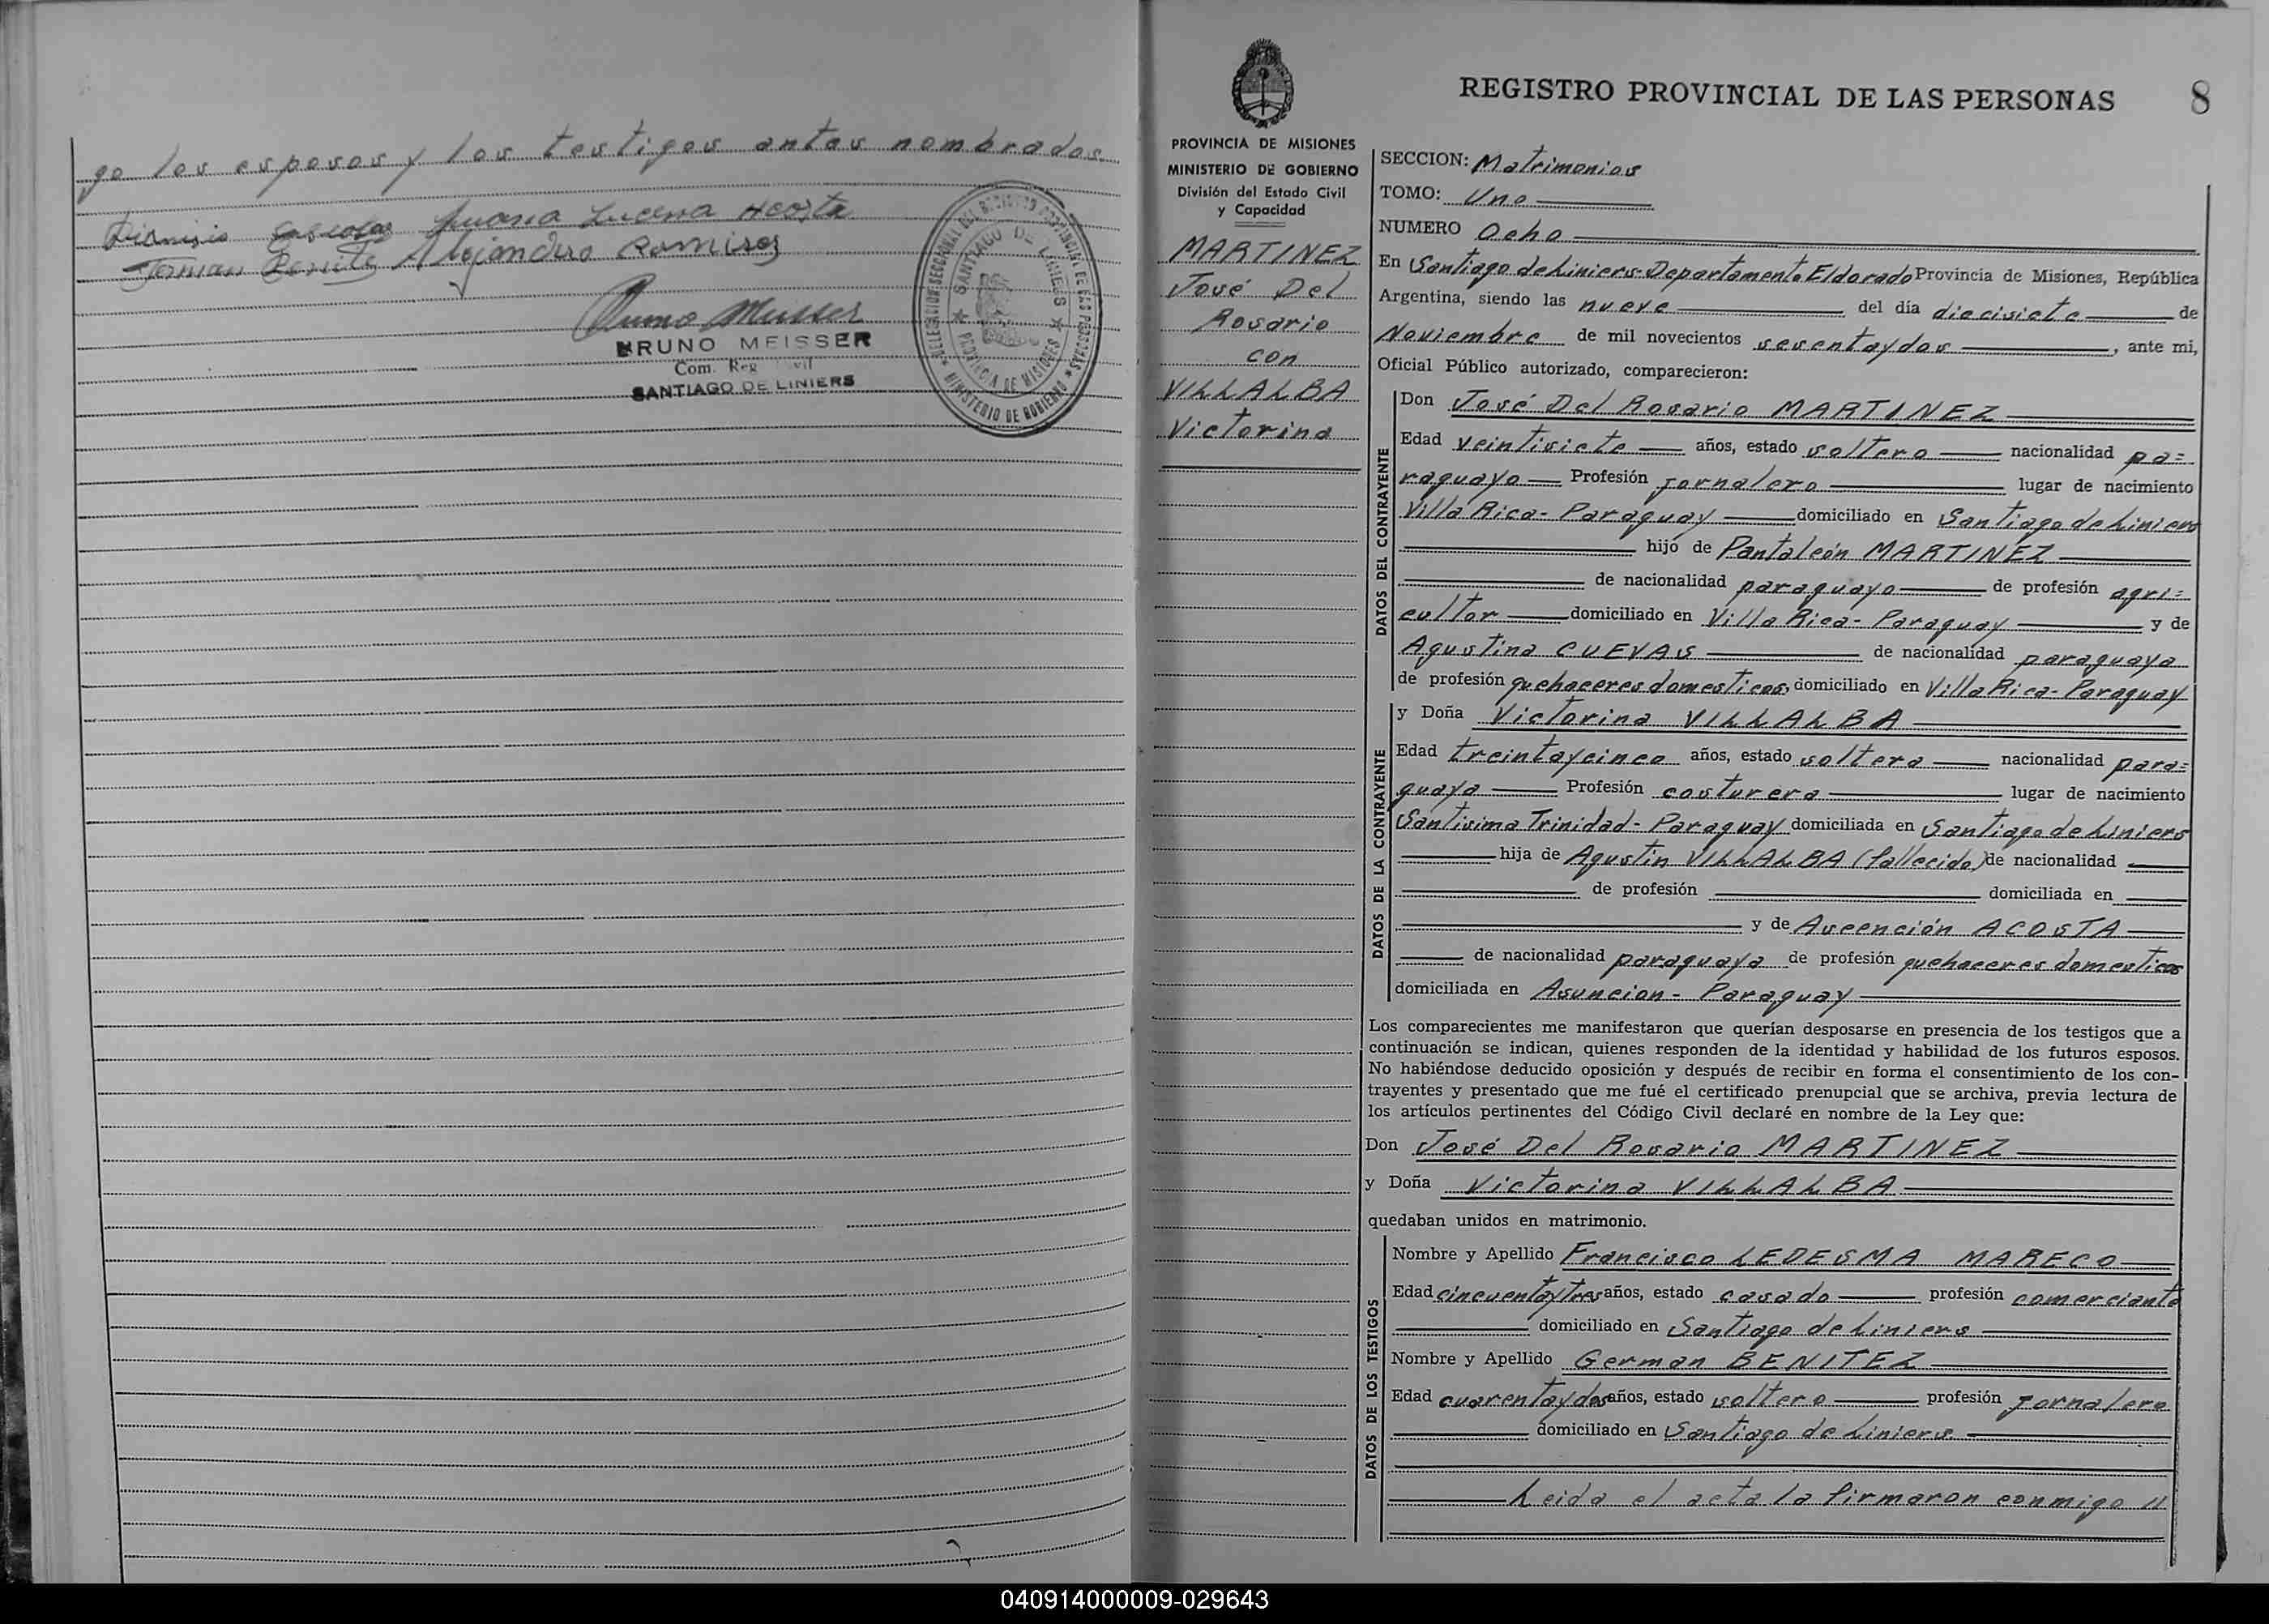 go los esposos y los testigos antes nombrados.
Dionisio Juana Lucena Acosta
German Benite Alejandro Ramires
Bruno Meisser
BRUNO MEISSER
Com. Reg vil
SANTIAGO DE LINIERS
DELEGACION SECCIONAL DEL REGISTRO PROVINCIAL DE LAS PERSONAS
★ SANTIAGO DE LINIERS ★
PROVINCIA DE MISIONES
★ MINISTERIO DE GOBIERNO ★
PROVINCIA DE MISIONES
MINISTERIO DE GOBIERNO
División del Estado Civil
y Capacidad
MARTINEZ
José Del
Rosario
con
VILLALBA
Victorina
REGISTRO PROVINCIAL DE LAS PERSONAS 8
SECCION: Matrimonios
TOMO: Uno
NUMERO Ocho
En Santiago de Liniers-Departamento Eldorado Provincia de Misiones, República
Argentina, siendo las nueve del día diecisiete de
Noviembre de mil novecientos sesentaydos, ante mi,
Oficial Público autorizado, comparecieron:
DATOS DEL CONTRAYENTE
Don José Del Rosario MARTINEZ
Edad veintisiete años, estado soltero nacionalidad pa=
raguayo Profesión jornalero lugar de nacimiento
Villa Rica- Paraguay domiciliado en Santiago de Liniers
hijo de Pantaleón MARTINEZ
de nacionalidad paraguayo de profesión agri=
cultor domiciliado en Villa Rica- Paraguay y de
Agustina CUEVAS de nacionalidad paraguaya
de profesión quehaceres domesticos, domiciliado en Villa Rica- Paraguay
DATOS DE LA CONTRAYENTE
y Doña Victorina VILLALBA
Edad treintaycinco años, estado soltera nacionalidad para=
guaya Profesión costurera lugar de nacimiento
Santisima Trinidad- Paraguay domiciliada en Santiago de Liniers
hija de Agustin VILLALBA (fallecido) de nacionalidad
de profesión domiciliada en
y de Ascención ACOSTA
de nacionalidad paraguaya de profesión quehaceres domesticos
domiciliada en Asuncion- Paraguay
Los comparecientes me manifestaron que querían desposarse en presencia de los testigos que a
continuación se indican, quienes responden de la identidad y habilidad de los futuros esposos.
No habiéndose deducido oposición y después de recibir en forma el consentimiento de los con-
trayentes y presentado que me fué el certificado prenupcial que se archiva, previa lectura de
los artículos pertinentes del Código Civil declaré en nombre de la Ley que:
Don José Del Rosario MARTINEZ
y Doña Victorina VILLALBA
quedaban unidos en matrimonio.
DATOS DE LOS TESTIGOS
Nombre y Apellido Francisco LEDESMA MARECO
Edad cincuentaytres años, estado casado profesión comerciante
domiciliado en Santiago de Liniers
Nombre y Apellido German BENITEZ
Edad cuarentaydos años, estado soltero profesión jornalero
domiciliado en Santiago de Liniers.
Leida el acta la firmaron conmigo //
040914000009-029643